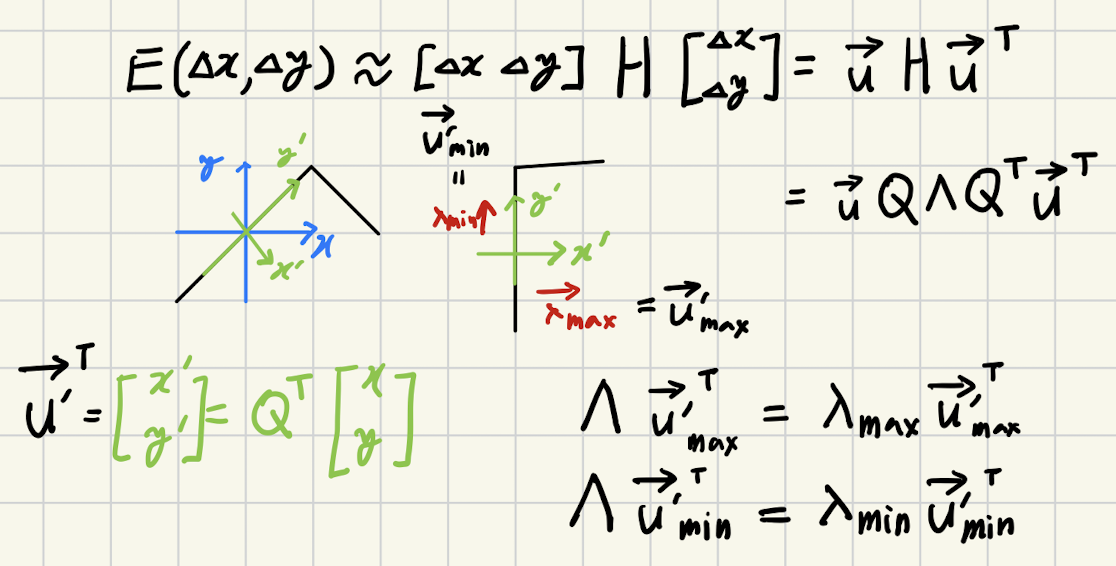 E(Δx,Δy) ≈ [Δx Δy] H [Δx Δy] = u⃗ H u⃗ᵀ
= u⃗ Q Λ Qᵀ u⃗ᵀ
y
y′
x
x′
u⃗′min
=
λmin
y′
x′
x⃗max = u⃗′max
u⃗′ᵀ = [x′ y′] = Qᵀ [x y]
Λ u⃗′ᵀmax = λmax u⃗′ᵀmax
Λ u⃗′ᵀmin = λmin u⃗′ᵀmin